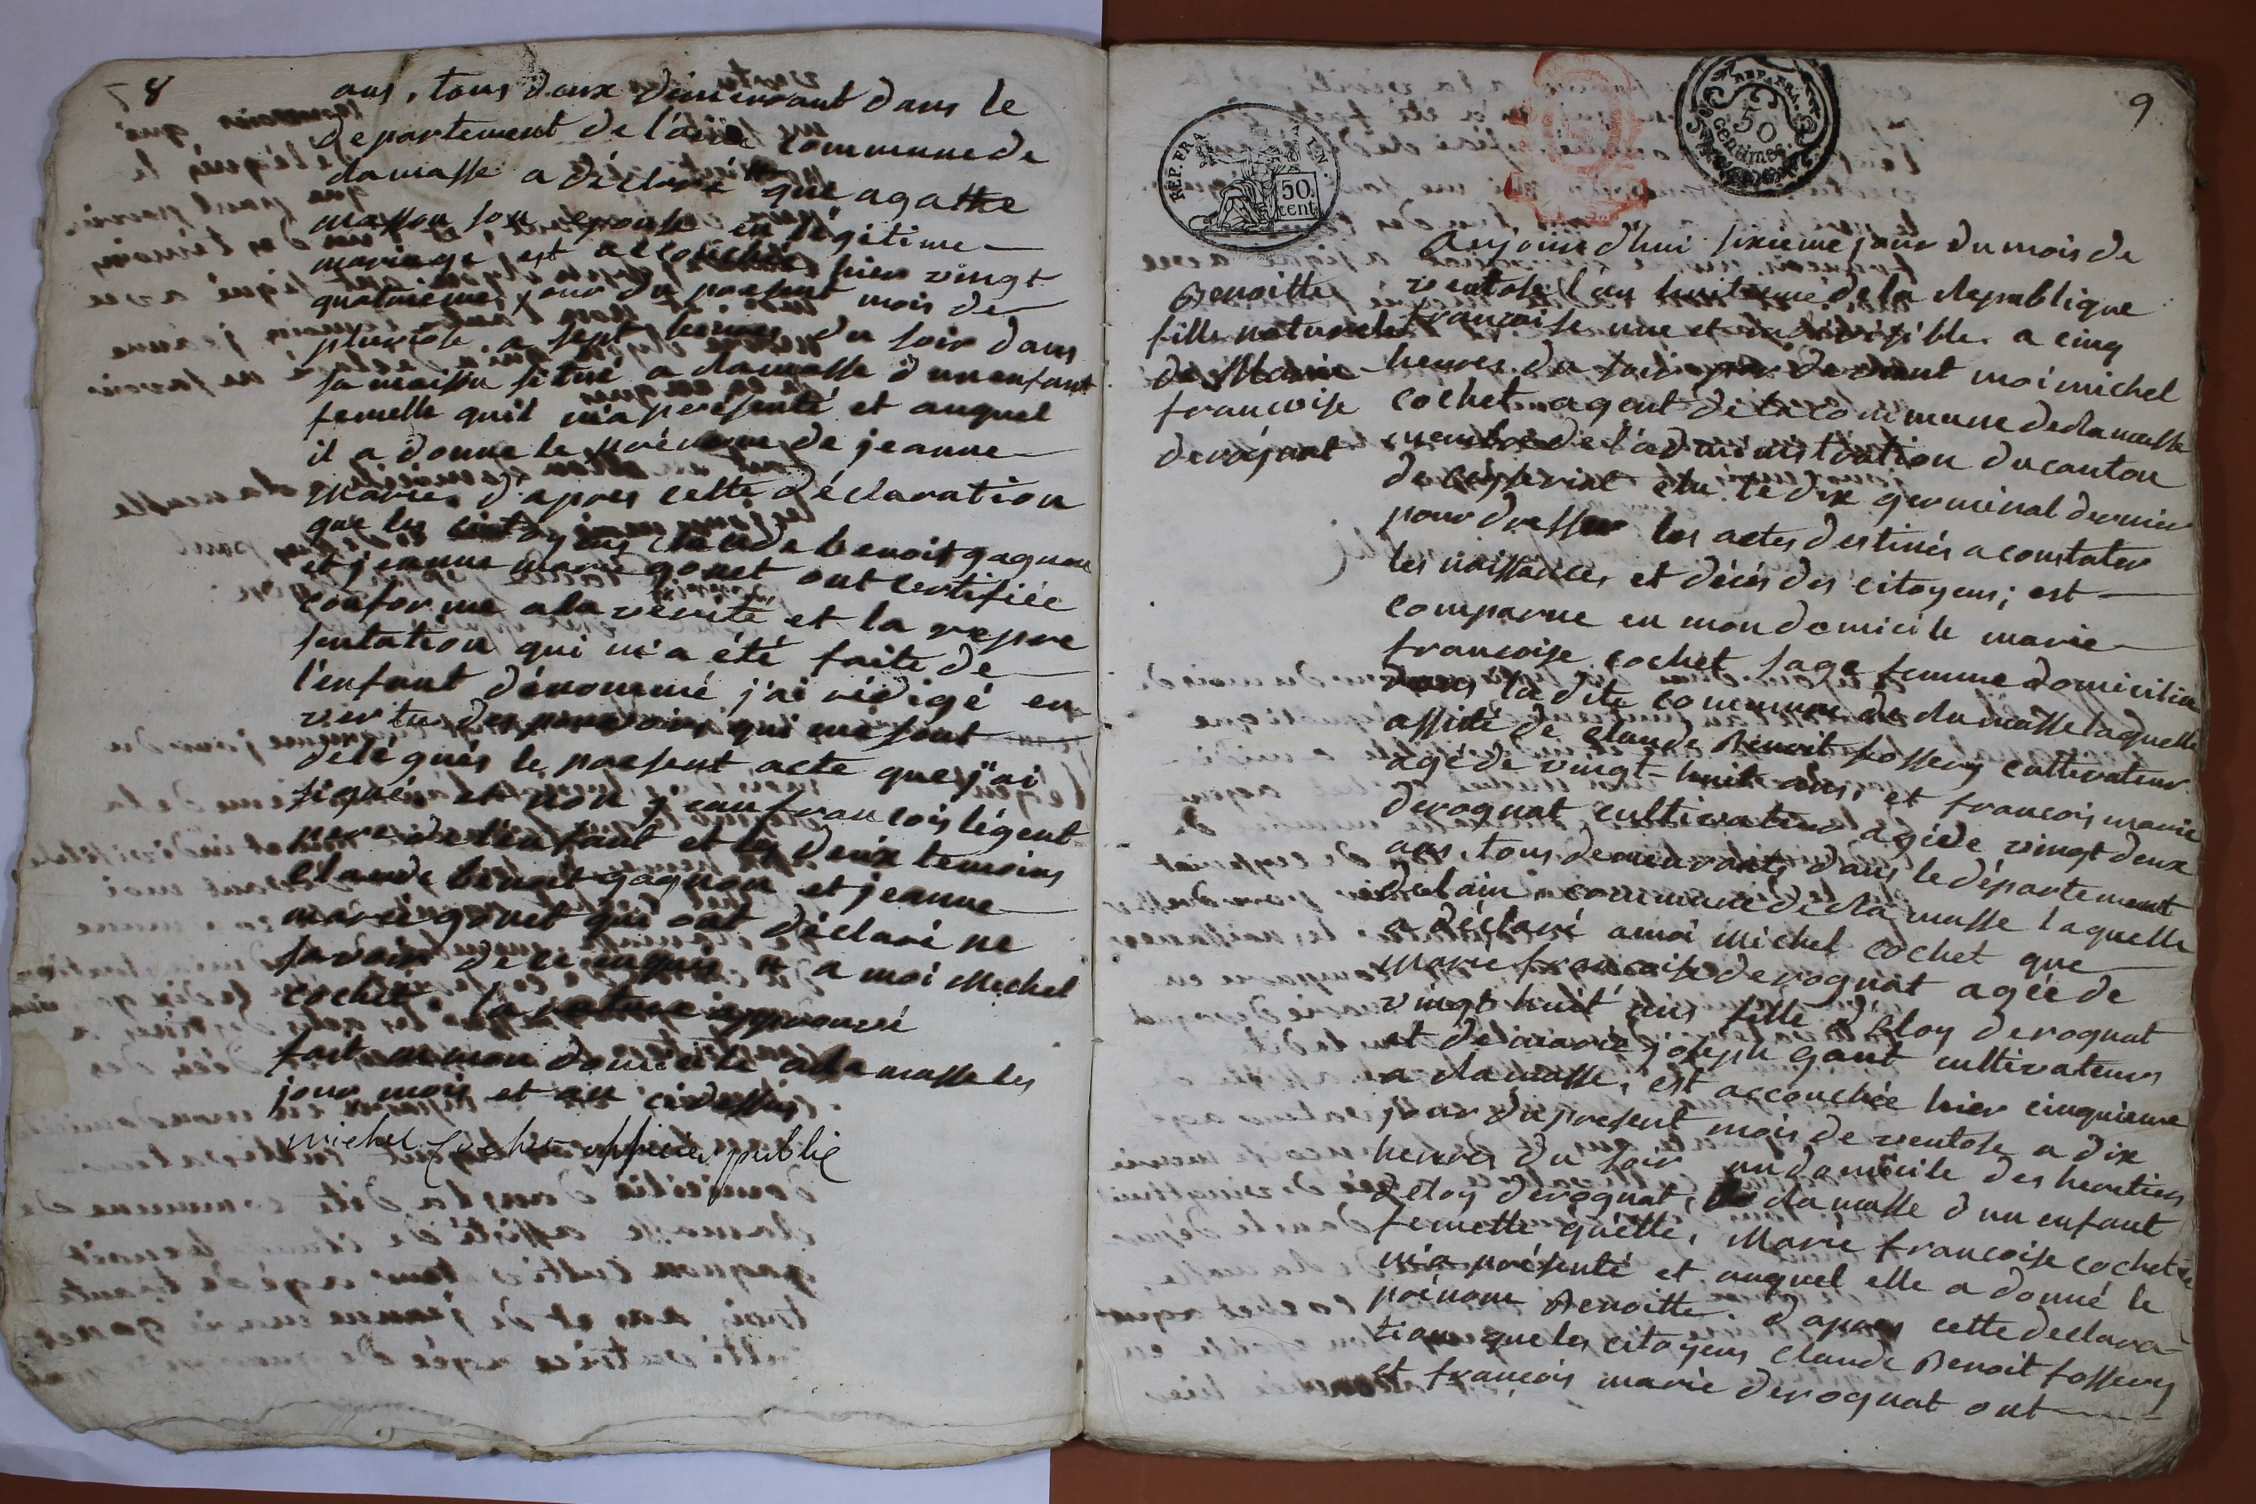 8
ans, tous deux demeurant dans le
departement de l'ain commune de
lamasse a déclaré que agathe
masson son epouse en légitime
mariage, est accouchée hier vingt
quatrieme jour du present mois de
pluviose a sept heures du soir dans
sa maison situé a lamasse d'un enfant
femelle quil m'a presenté et auquel
il a donne le prénom de jeanne
marie. d'apres cette déclaration
que les citoyens claude benoit gagnon
et jeanne marie gonet ont certifiée
conforme a la verité et la repre
sentation qui m'a été faite de
l'enfant dénommé j'ai rédigé en
vertu des pouvoirs qui me sont
délégués le present acte que j'ai
signé et non jean francois légent
pere de l'enfant et les deux temoins
claude benoit gagnon et jeanne
marie gonet qui ont déclaré ne
savoir de ce enquis a moi Michel
cochet. la rature approuvé
fait en mon domicile a lamasse les
jour mois et an cidessus
michel Cochet officier public
9
REP. FRA
50
cent.
REP. FRA.
50
centimes.
Aujourd'hui sixieme jour du mois de
ventose l'an huitieme de la Republique
francaise une et indivisible. a cinq
heures du soir par devant moi michel
cochet agent de la commune de lamasse
membre de l'administration du canton
de ceyseriat élu le dix germinal dernier
pour dresser les actes destinés a constater
les naissances et décés des citoyens; est
comparue en mon domicile marie
francoise cochet sage femme domiciliée
dans la dite commune de lamasse laquelle
assisté de claude Benoit fossery cultivateur
agé de vingt-huit ans, et francois marie
derognat cultivateur agé de vingt deux
ans, tous demeurants dans le département
de lain commune de lamasse laquelle
a déclaré amoi Michel cochet que
Marie francoise derognat agée de
vingt huit ans fille d'Eloy derognat
et de marie joseph gant cultivateurs
a lamasse, est accouchée hier cinquieme
jour du present mois de ventose a dix
heures du soir au domicile des heritiers
d'eloy derognat, de lamasse d'un enfant
femelle qu'elle, Marie francoise cochet
m'a présenté et auquel elle a donné le
prénom Benoitte. d'apres cette declara-
tion que les citoyens claude Benoit fossery
et francois marie derognat ont
Benoitte
fille naturele
de Marie
francoise
derognat